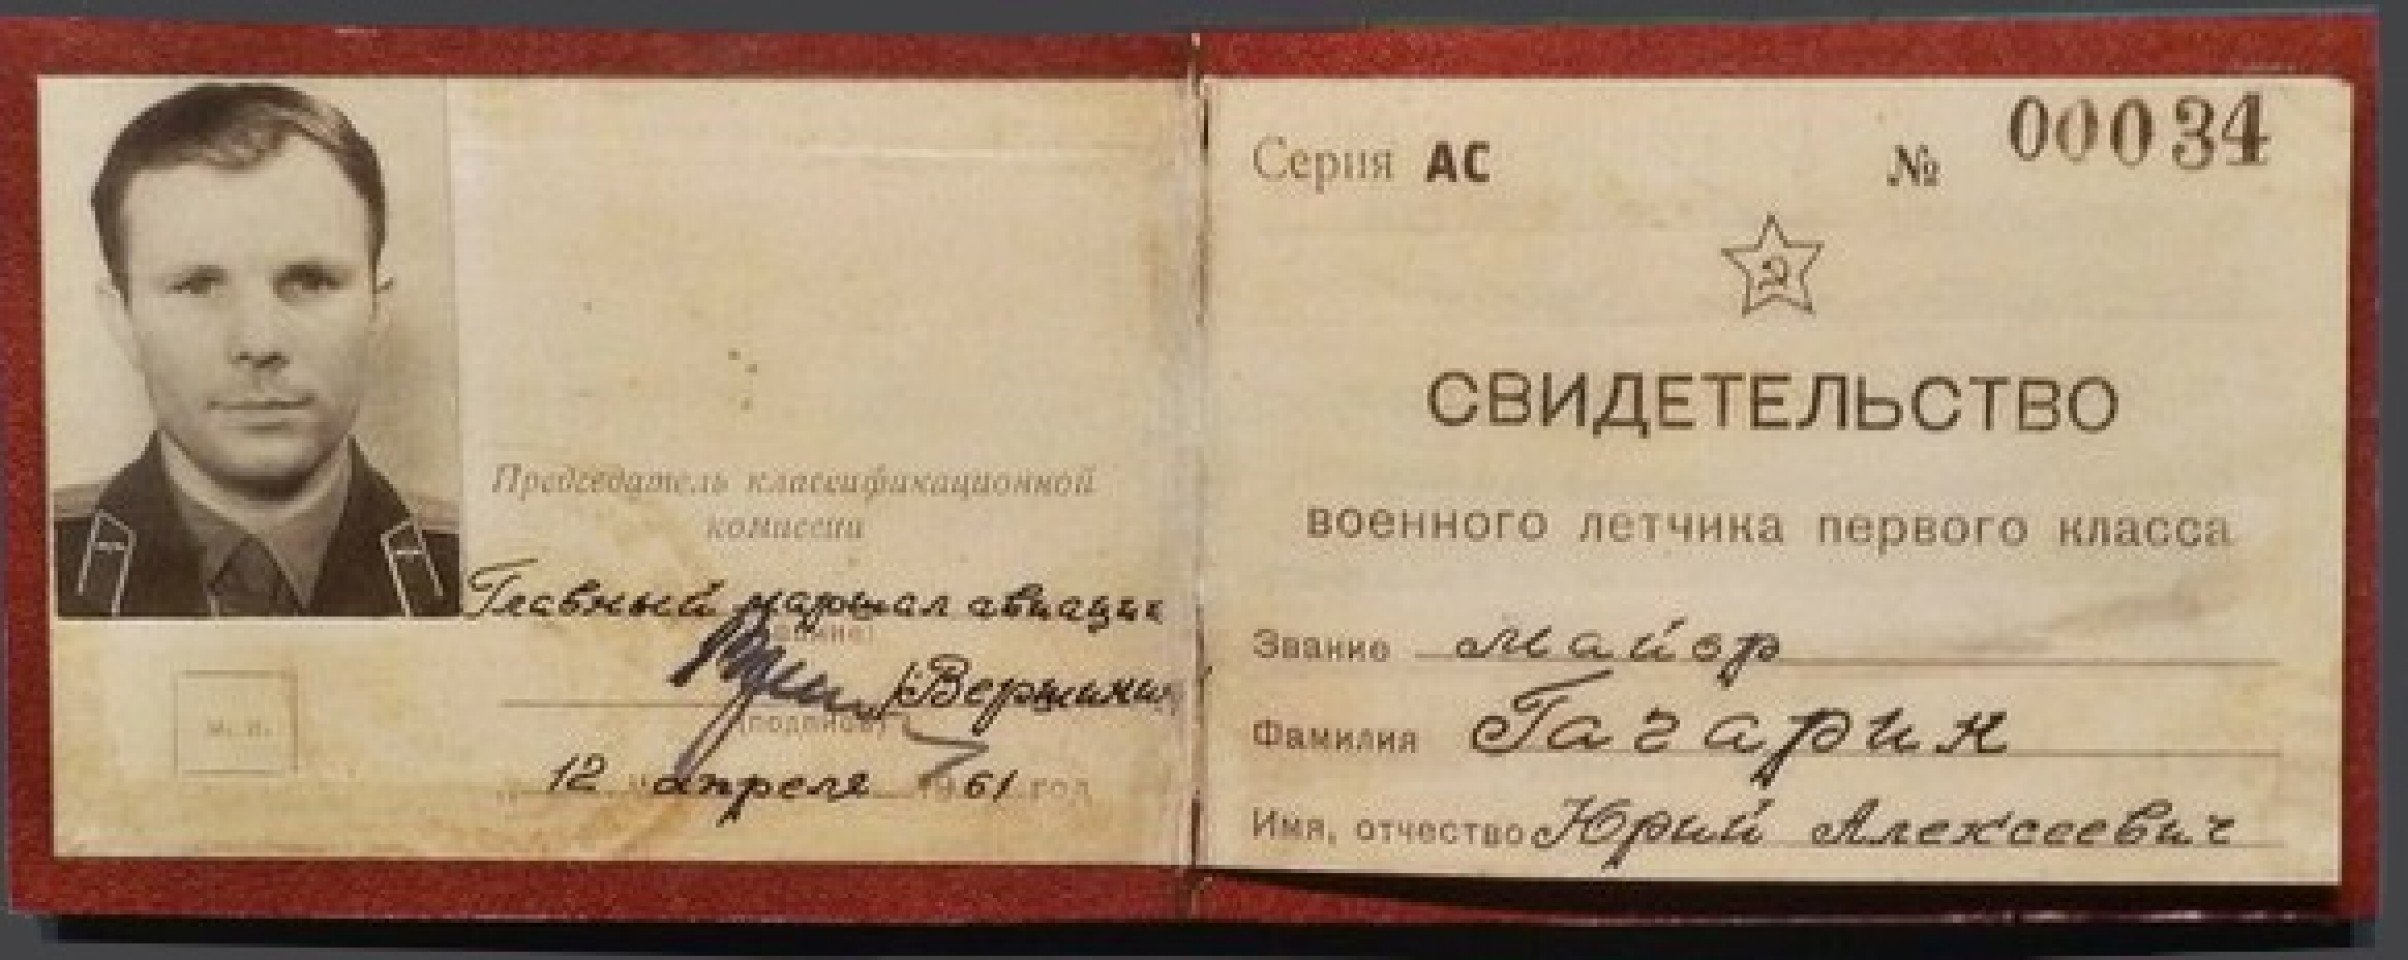 Председатель классификационной
комиссии
Главный маршал авиации
(звание)
/Вершинин
(подпись)
12 апреля 1961 год
М. П.
Серия АС № 00034
СВИДЕТЕЛЬСТВО
военного летчика первого класса
Звание майор
Фамилия Гагарин
Имя, отчество Юрий Алексеевич